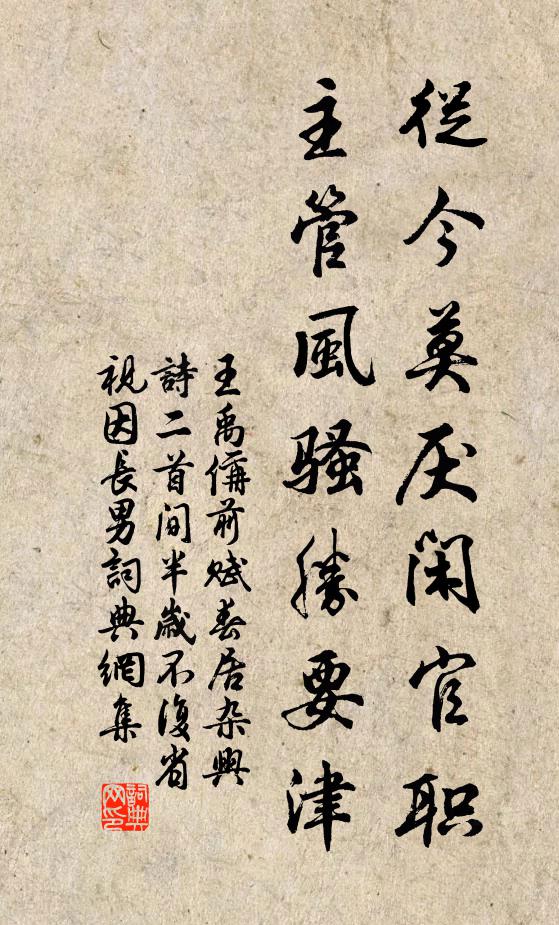 從今莫厌閑官职
主管風騷勝要津
王禹偁前赋春居杂興
詩二首间半歲不復省
視因長男詞典網集
詞典
网印